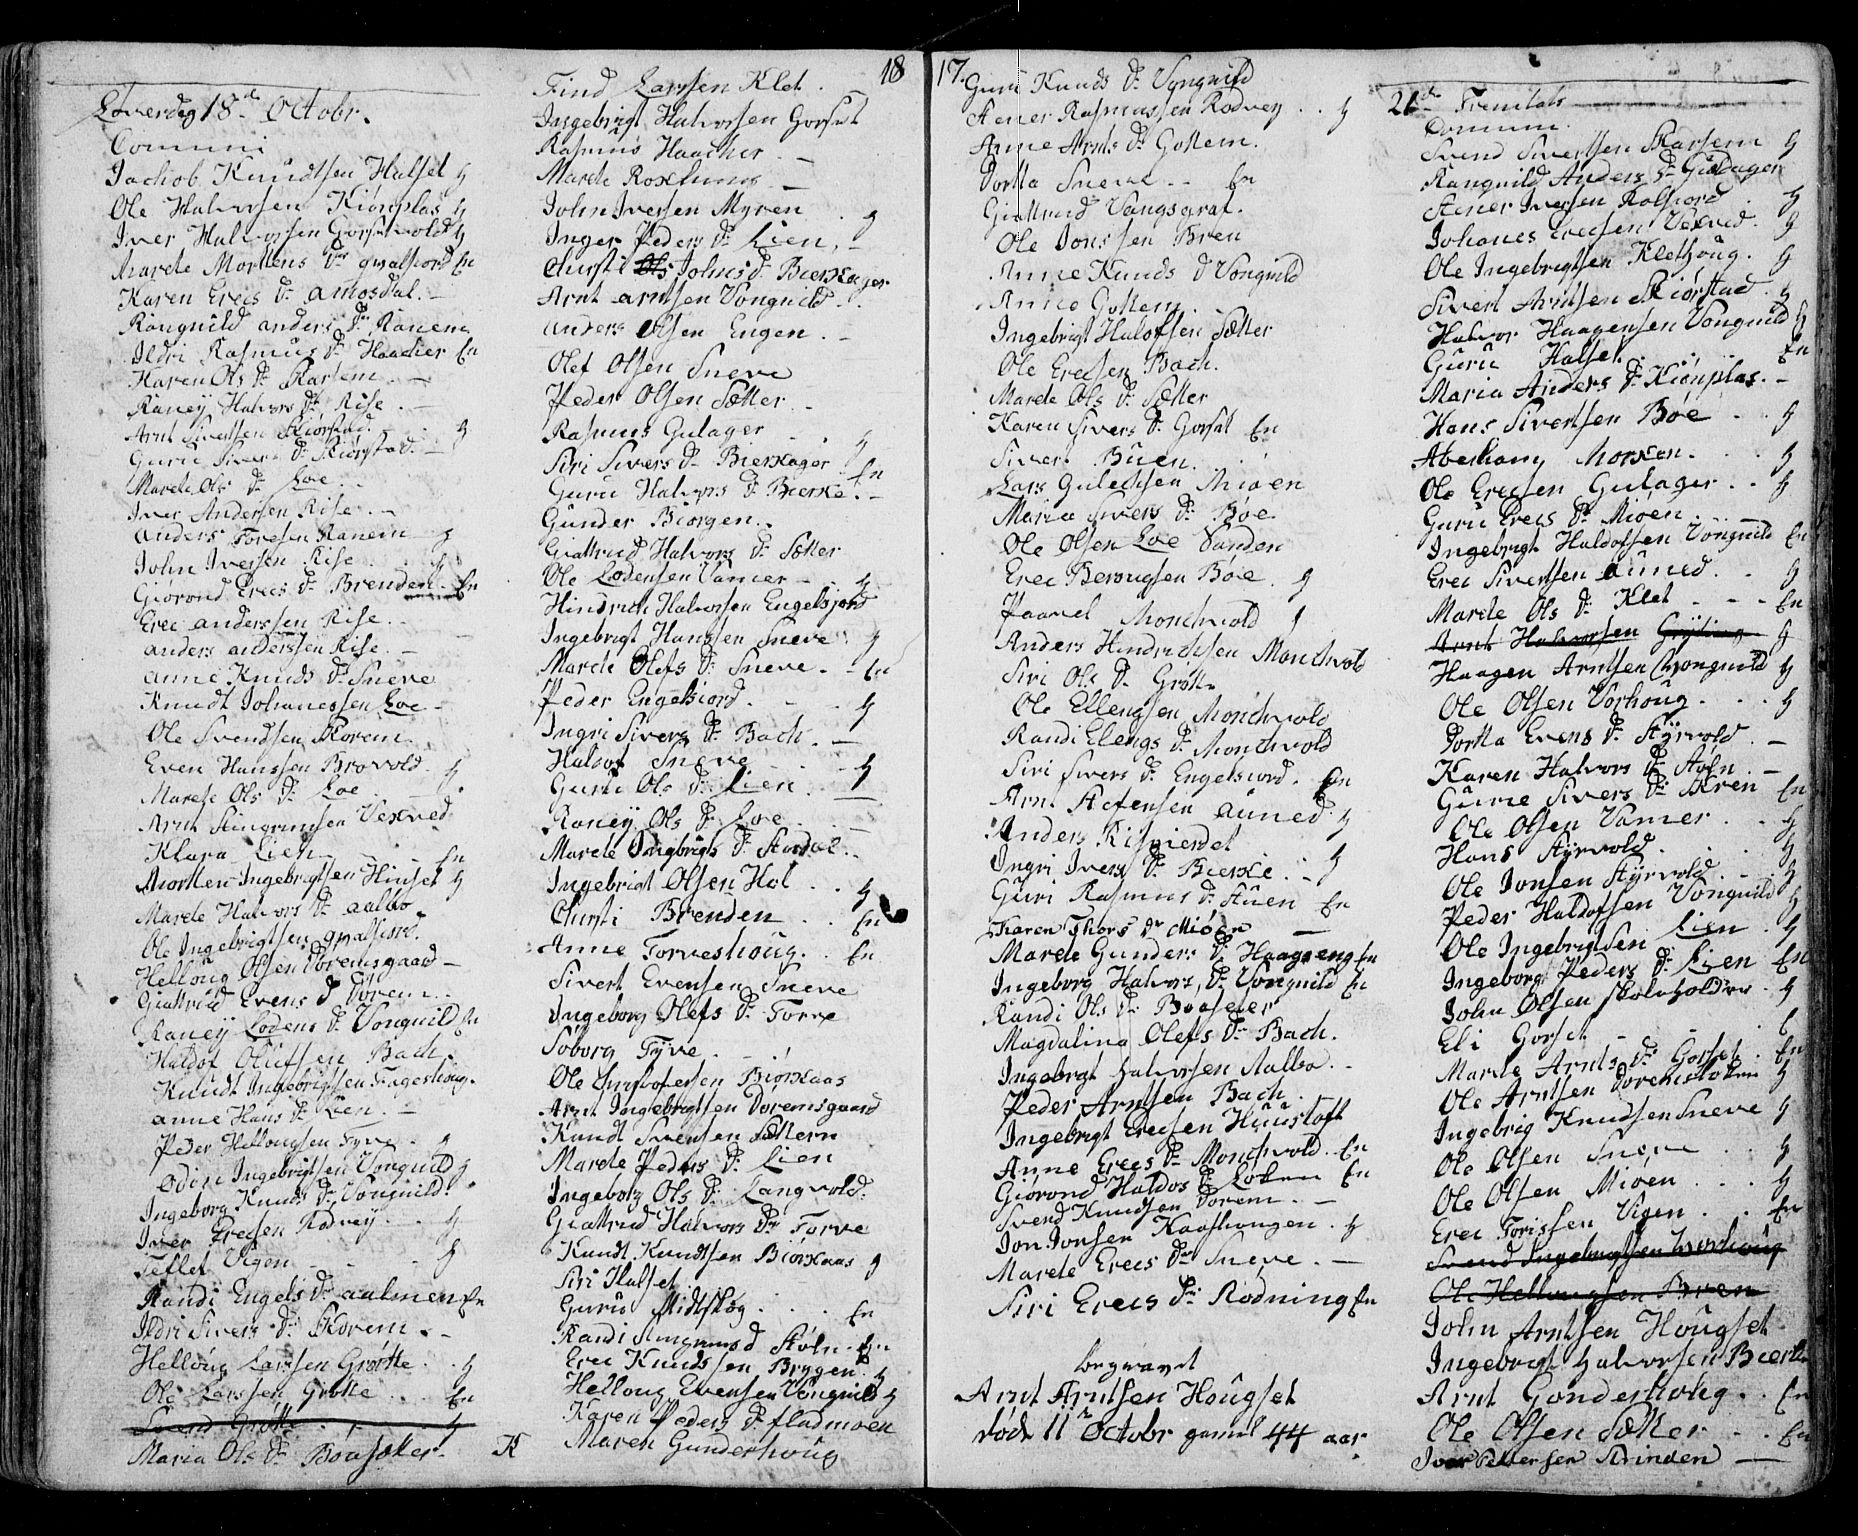 Løverdag 18de Octobr.
Comuni
Jachob Knudtsen Halset
Ole Halvorsen Kiønplas
Iver Halvorsen Gorsetvold
Marete Mortens Dr qvalfiord En
Karen Erecs Dr amosdal
Rangnild anders Dr Ranem
Ildri Rasmus Dr Haacher En
Karen Ols Dr Karsem
Raney Halvors Dr Rise
Arnt Sivertsen Skiørstad
Guru Sivers Dr Skiørstad
Marete Ols Dr Loe
Iver Andersen Rise
Anders Toresen Ranem
John Iversen Rise
Giørond Erecs Dr Brenden En
Erec anderssen Rise
anders anderssen Rise
anne Knuds Dr Sneve
Knudt Johanessen Loe
Ole Svendsen Skorem
Even Hanssen Brovold
Marete Ols Dr Loe
Arnt Stingrimsen Vexved
Klara Lien En
Morten Ingebrigtsen Hinset
Marete Halvors Dr aalbo
Ole Ingebrigtsen qvalfiord
Helloug Olsen Doremsgaard
Giattrud Evens D Dørem
Raney Lodens Dr Vongnild En
Haldof Olufsen Bach
Knudt Ingebrigtsen Fageshoug
anne Hans Dr Lien
Peder Hellougsen Tyve
Odin Ingebrigtsen Vongnild
Ingeborg Knuds Dr Vongnild
Iver Erecsen Rødvey
Tellef Vigen
Randi Engels Dr aalmen En
Ildri Sivers Dr Skorem
Helloug Larssen Grøtte
Ole Larssen Grøtte En
Svend Grøtte
Maria Ols Dr Bousæter
K
Find Larssen Klet
Ingebrigt Halvorsen Gorset
Rasmus Haacher
Marete Roxhuus
John Iversen Myren
Inger Peders Dr Lien
Chirsti Ols Johns D Bierkager
Arnt arntsen Vongnild
anders Olsen Engen
Olef Olsen Sneve
Peder Olsen Sætter
Rasmus Gulager
Siri Sivers Dr Bierkager En
Guru Halvors Dr Bierke
Gunder Biørgen
Giattrud Halvors Dr Sætter
Ole Lodensen Vamer
Hindrich Halvorsen Engelsjord
Ingebrigt Hanssen Sneve
Marete Olefs Dr Sneve En
Peder Engelsiord
Ingri Sivers Dr Bach
Haldof Sneve
Guru Ols Dr Lien
Raney Ols Dr Loe
Marete Ingbrigts Dr Stordal
Ingebrigt Olsen Hol
Chirsti Brenden En
Anne Torveshoug En
Sivert Evensen Sneve
Ingeborg Olefs Dr Torve
Søborg Tyve
Ole Christofersen Biørkaas
Arnt Ingebrigtsen Doremsgaard
Knudt Svensen Sættern
Marete Peders Dr Lien
Ingeborg Ols Dr Langvold
Giattrud Halvors Dr Torve
Knudt Knudtsen Biørkaas
Siri Halset
Guru Midtskog En
Randi Stingrims d Støln En
Erec Knudssen Brygen
Helloug Evensen Vongnild
Karen Peders Dr fladmoen
Maren Gundershoug
18
17.
Guru Knuds Dr Vongnild
Stener Rasmussen Rødvey
Anne Arnts Dr Gottem
Dortta Sneve En
Giattrud Vangsgraf
Ole Jonssen Bren
Anne Knuds D Vongnild
Anne Gottem
Ingebrigt Halofsen Sætter
Ole Erecsen Bach
Marete Ols Dr Sætter
Karen Sivers Dr Gorset En
Siver Buen
Lars Gulechsen Mioen
Maria Sivers Dr Bøe
Ole Olsen Loe Sanden
Erec Berougsen Bøe
Paavel Monchvold
Anders Hindrichsen Monchvold
Siri Ols Dr Grøtte
Ole Ellengsen Monchvold
Randi Elengs Dr Monchvold
Siri Sivers Dr Engelsiord En
Arnt Stefensen auned
Anders Rismerdet
Ingri Ivers Dr Bierke
Guri Rasmus Dr Stuen En
Karen Thors Dr Mióen
Marete Gunders Dr Haagaeng En
Ingeborg Halvors Dr Vongnild En
Randi Ols Dr Boaseter
Magdalina Olefs Dr Bach
Ingebrigt Halvorsen Aalbo
Peder Arntsen Bach
Ingebrigt Erecsen Huustoft
Anne Erecs Dr Monchvold En
Giørond Haldos Dr Løken En
Svend Knudsen Dorem
Jon Jonsen Kaashougen
Marete Erecs Dr Sneve
Siri Erecs Dr Rødning En
begravet
Arnt Arntsen Hougset
død 11te Octobr gamel 44 aar
21de Trenitats
Comuni
Svend Sivertsen Karsem
Rangnild Anders Dr Guldager
Stener Iversen Rolsiord
Johanes Erecsen Vexved
Ole Ingebrigtsen Klethoug
Sivert Arntsen Skiørstad
Halvor Haagensen Vongnild
Guru Halset En
Maria Anders Dr Kiønplas
Hans Sivertsen Bøe
Aberham Morken
Ole Erecsen Gulager
Guru Erecs Dr Mióen
Ingebrigt Haldofsen Vongnild En
Erec Sivertsen auned
Marete Ols Dr Klet En
Arnt Halvorsen Gryting
Haagen Arntsen Vongnild
Ole Olsen Vorhoug
Dortta Evens Dr Styrvold
Karen Halvors Dr Støln
Gurue Sivers Dr Skren En
Ole Olsen Vamer
Hans Styrvold
Ole Jonsen Styrvold
Peder Haldofsen Vongnild
Ole Ingebrigtsen Lien
Ingeborg Peders Dr Lien En
John Olsen Skoleholder
Eli Gorset
Marete Arnts Dr Gorset En
Ole Arntsen Doremsløken
Ingebrig Knudsen Sneve
Ole Olsen Sneve
Ole Olsen Mióen
Erec Torissen Vigen En
Svend Ingebrigtsen Vorhoug
Ole Hellougsen Bren
John Arntsen Hougset
Ingebrigt Halvorsen Bierke
Arnt Gondershoug En
Ole Olsen Sætter En
Iver Pettersen Krinden